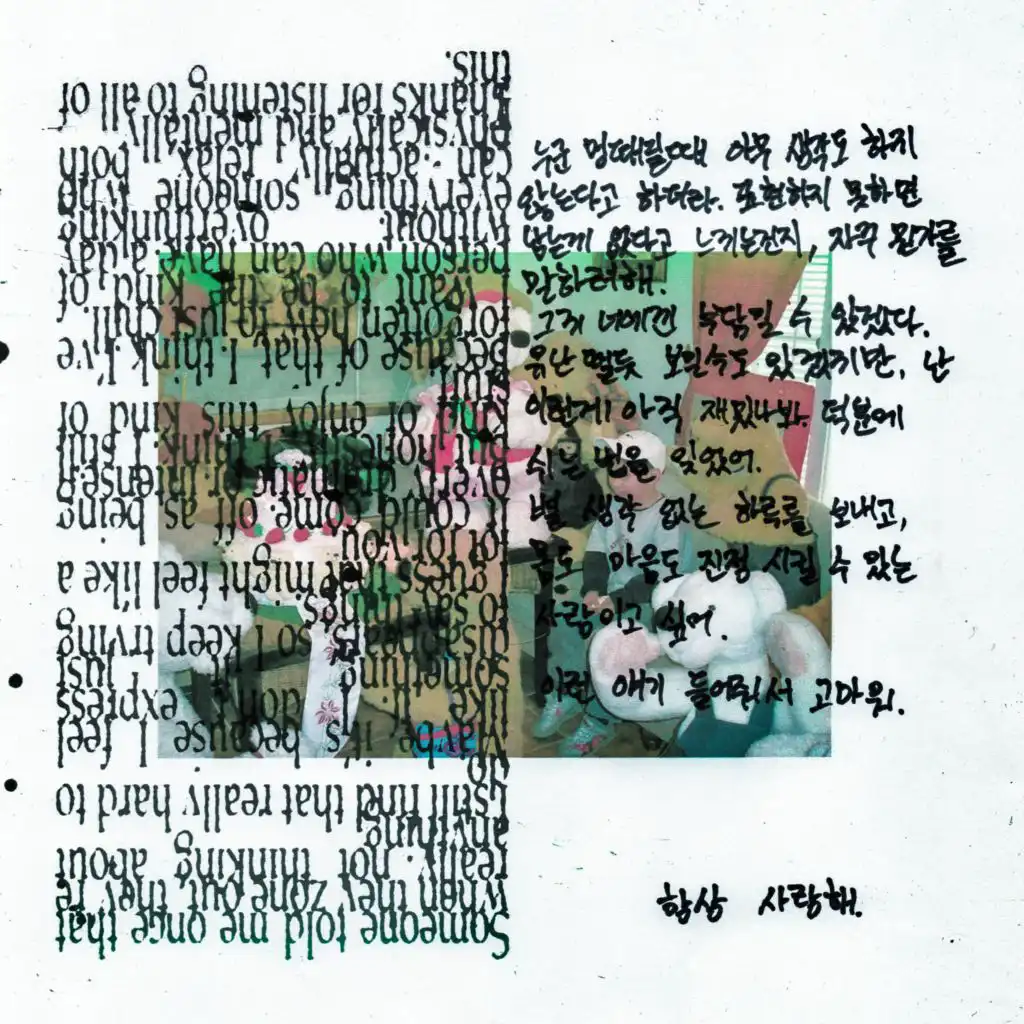 Someone told me once that
when they zone out, they're
really not thinking about
anything.
I still find that really hard to
do.
Maybe it's because I feel
like if I don't express
something, it just
disappears, so I keep trying
to say things.
I guess that might feel like a
lot for you.
It could come off as being
overly dramatic or intense,
but honestly, I think I still
kind of enjoy this kind of
Because of that I think I've
forgotten how to just chill.
I want to be the kind of
person who can have a day
without overthinking
everything, someone who
can actually relax both
physically and mentally.
Thanks for listening to all of
this.
누군 멍때릴때 아무 생각도 하지
않는다고 하더라. 표현하지 못하면
남는게 없다고 느끼는건지, 자꾸 뭔가를
말하려해.
그게 너에겐 부담일 수 있겠다.
유난 떨듯 보일수도 있겠지만, 난
이런게 아직 재밌나봐. 덕분에
쉬는 법을 잊었어.
별 생각 없는 하루를 보내고,
몸도 마음도 진정 시킬 수 있는
사람이고 싶어.
이런 얘기 들어줘서 고마워.
항상 사랑해.